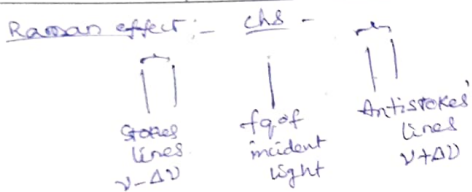 Raman effect :- chs -
Stokes lines ν-Δν
fq of incident light
Antistokes' lines ν+Δν